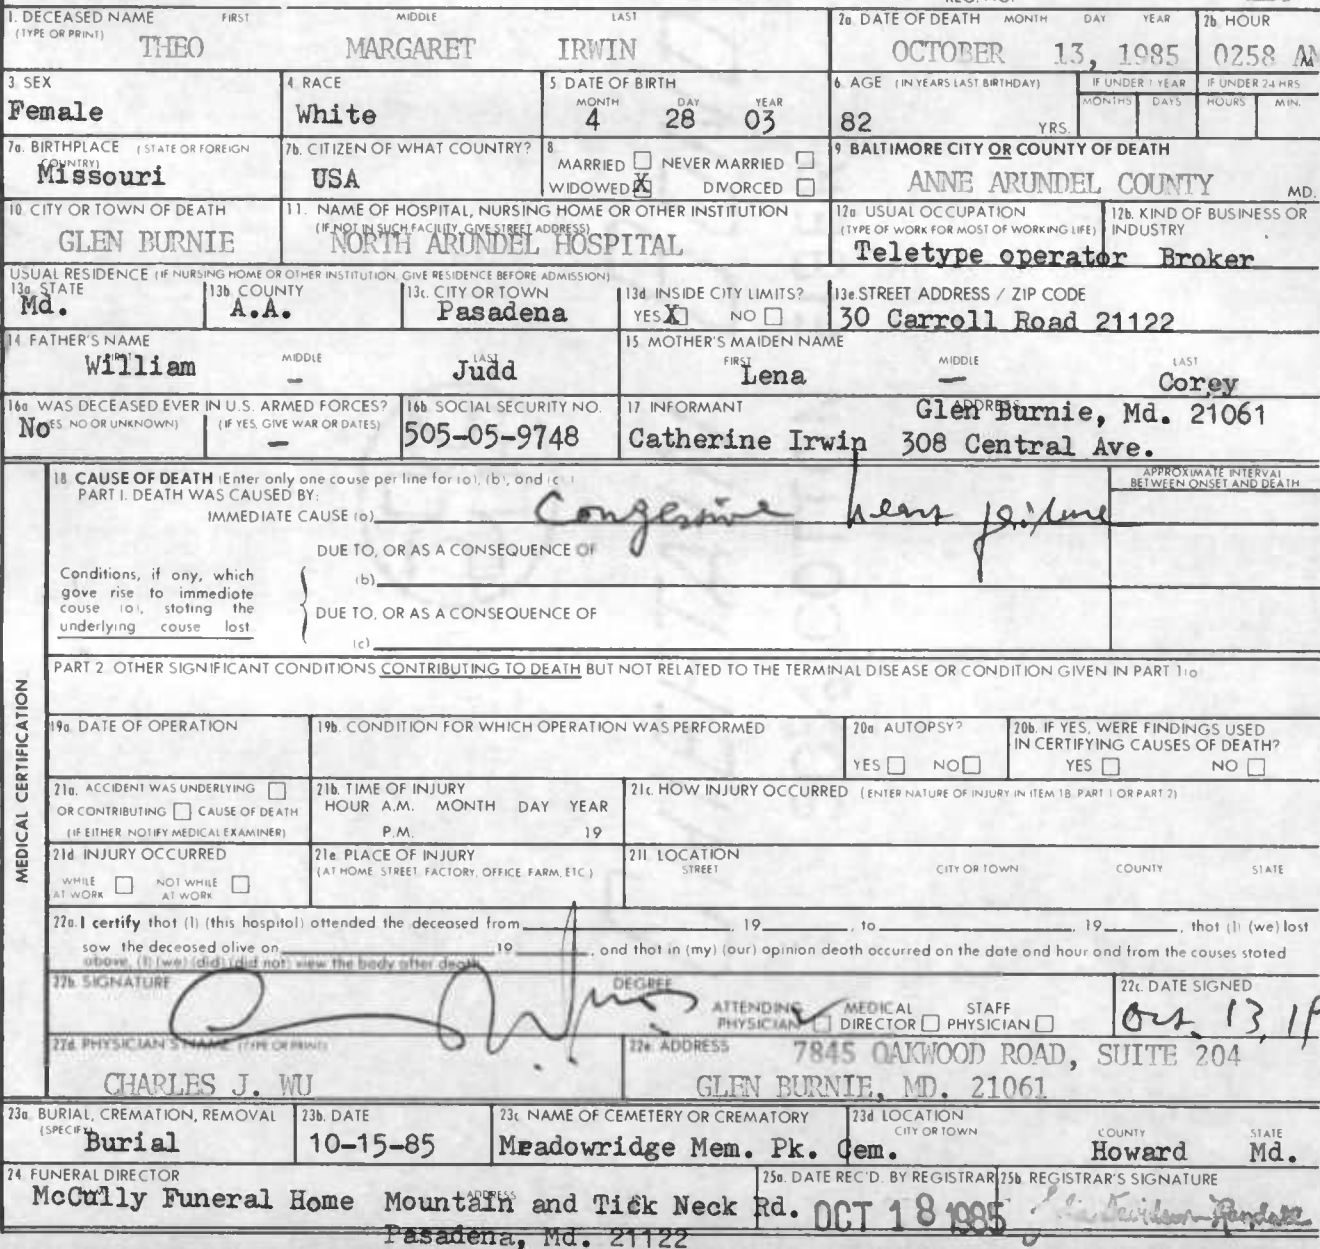 1. DECEASED NAME FIRST MIDDLE LAST
(TYPE OR PRINT)
THEO MARGARET IRWIN
2a. DATE OF DEATH MONTH DAY YEAR
OCTOBER 13, 1985
2b. HOUR
0258 AM
3 SEX
Female
4 RACE
White
5 DATE OF BIRTH
MONTH DAY YEAR
4 28 03
6. AGE (IN YEARS LAST BIRTHDAY)
82 YRS.
IF UNDER 1 YEAR
MONTHS DAYS
IF UNDER 24 HRS
HOURS MIN.
7a. BIRTHPLACE (STATE OR FOREIGN
COUNTRY)
Missouri
7b. CITIZEN OF WHAT COUNTRY?
USA
8
MARRIED NEVER MARRIED
WIDOWED X DIVORCED
9 BALTIMORE CITY OR COUNTY OF DEATH
ANNE ARUNDEL COUNTY MD.
10 CITY OR TOWN OF DEATH
GLEN BURNIE
11. NAME OF HOSPITAL, NURSING HOME OR OTHER INSTITUTION
(IF NOT IN SUCH FACILITY, GIVE STREET ADDRESS)
NORTH ARUNDEL HOSPITAL
12a USUAL OCCUPATION
(TYPE OF WORK FOR MOST OF WORKING LIFE)
Teletype operator
12b. KIND OF BUSINESS OR
INDUSTRY
Broker
USUAL RESIDENCE (IF NURSING HOME OR OTHER INSTITUTION GIVE RESIDENCE BEFORE ADMISSION)
13a. STATE
Md.
13b. COUNTY
A.A.
13c. CITY OR TOWN
Pasadena
13d INSIDE CITY LIMITS?
YES X NO
13e. STREET ADDRESS / ZIP CODE
30 Carroll Road 21122
14 FATHER'S NAME
MIDDLE LAST
William - Judd
15 MOTHER'S MAIDEN NAME
FIRST MIDDLE LAST
Lena - Corey
16a WAS DECEASED EVER IN U.S. ARMED FORCES?
(YES, NO OR UNKNOWN) (IF YES, GIVE WAR OR DATES)
No -
16b SOCIAL SECURITY NO.
505-05-9748
17 INFORMANT ADDRESS
Glen Burnie, Md. 21061
Catherine Irwin 308 Central Ave.
MEDICAL CERTIFICATION
18 CAUSE OF DEATH (Enter only one cause per line for (a), (b), and (c).)
PART I. DEATH WAS CAUSED BY:
IMMEDIATE CAUSE (a) Congessive heart failure
APPROXIMATE INTERVAL
BETWEEN ONSET AND DEATH
DUE TO, OR AS A CONSEQUENCE OF
Conditions, if any, which
gave rise to immediate
cause (a), stating the
underlying cause last
(b)
DUE TO, OR AS A CONSEQUENCE OF
(c)
PART 2 OTHER SIGNIFICANT CONDITIONS CONTRIBUTING TO DEATH BUT NOT RELATED TO THE TERMINAL DISEASE OR CONDITION GIVEN IN PART 1(a)
19a. DATE OF OPERATION
19b. CONDITION FOR WHICH OPERATION WAS PERFORMED
20a AUTOPSY?
YES NO
20b. IF YES, WERE FINDINGS USED
IN CERTIFYING CAUSES OF DEATH?
YES NO
21a. ACCIDENT WAS UNDERLYING
OR CONTRIBUTING CAUSE OF DEATH
(IF EITHER NOTIFY MEDICAL EXAMINER)
21b. TIME OF INJURY
HOUR A.M. MONTH DAY YEAR
P.M. 19
21c. HOW INJURY OCCURRED (ENTER NATURE OF INJURY IN ITEM 18 PART 1 OR PART 2)
21d INJURY OCCURRED
WHILE NOT WHILE
AT WORK AT WORK
21e PLACE OF INJURY
(AT HOME STREET, FACTORY, OFFICE FARM, ETC.)
21f LOCATION
STREET CITY OR TOWN COUNTY STATE
22a. I certify that (I) (this hospital) attended the deceased from , 19 , to 19 , that (I) (we) last
saw the deceased alive on 19 , and that in (my) (our) opinion death occurred on the date and hour and from the causes stated
above, (I) (we) (did) (did not) view the body after death
22b. SIGNATURE DEGREE
ATTENDING MEDICAL STAFF
PHYSICIAN DIRECTOR PHYSICIAN
22c. DATE SIGNED
Oct. 13, 19
22d. PHYSICIAN'S NAME (TYPE OR PRINT)
CHARLES J. WU
22e. ADDRESS
7845 OAKWOOD ROAD, SUITE 204
GLEN BURNIE, MD. 21061
23a. BURIAL, CREMATION, REMOVAL
(SPECIFY)
Burial
23b. DATE
10-15-85
23c NAME OF CEMETERY OR CREMATORY
Meadowridge Mem. Pk. Cem.
23d LOCATION
CITY OR TOWN COUNTY STATE
Howard Md.
24 FUNERAL DIRECTOR ADDRESS
McCully Funeral Home Mountain and Tick Neck Rd.
Pasadena, Md. 21122
25a. DATE REC'D. BY REGISTRAR
OCT 18 1985
25b. REGISTRAR'S SIGNATURE